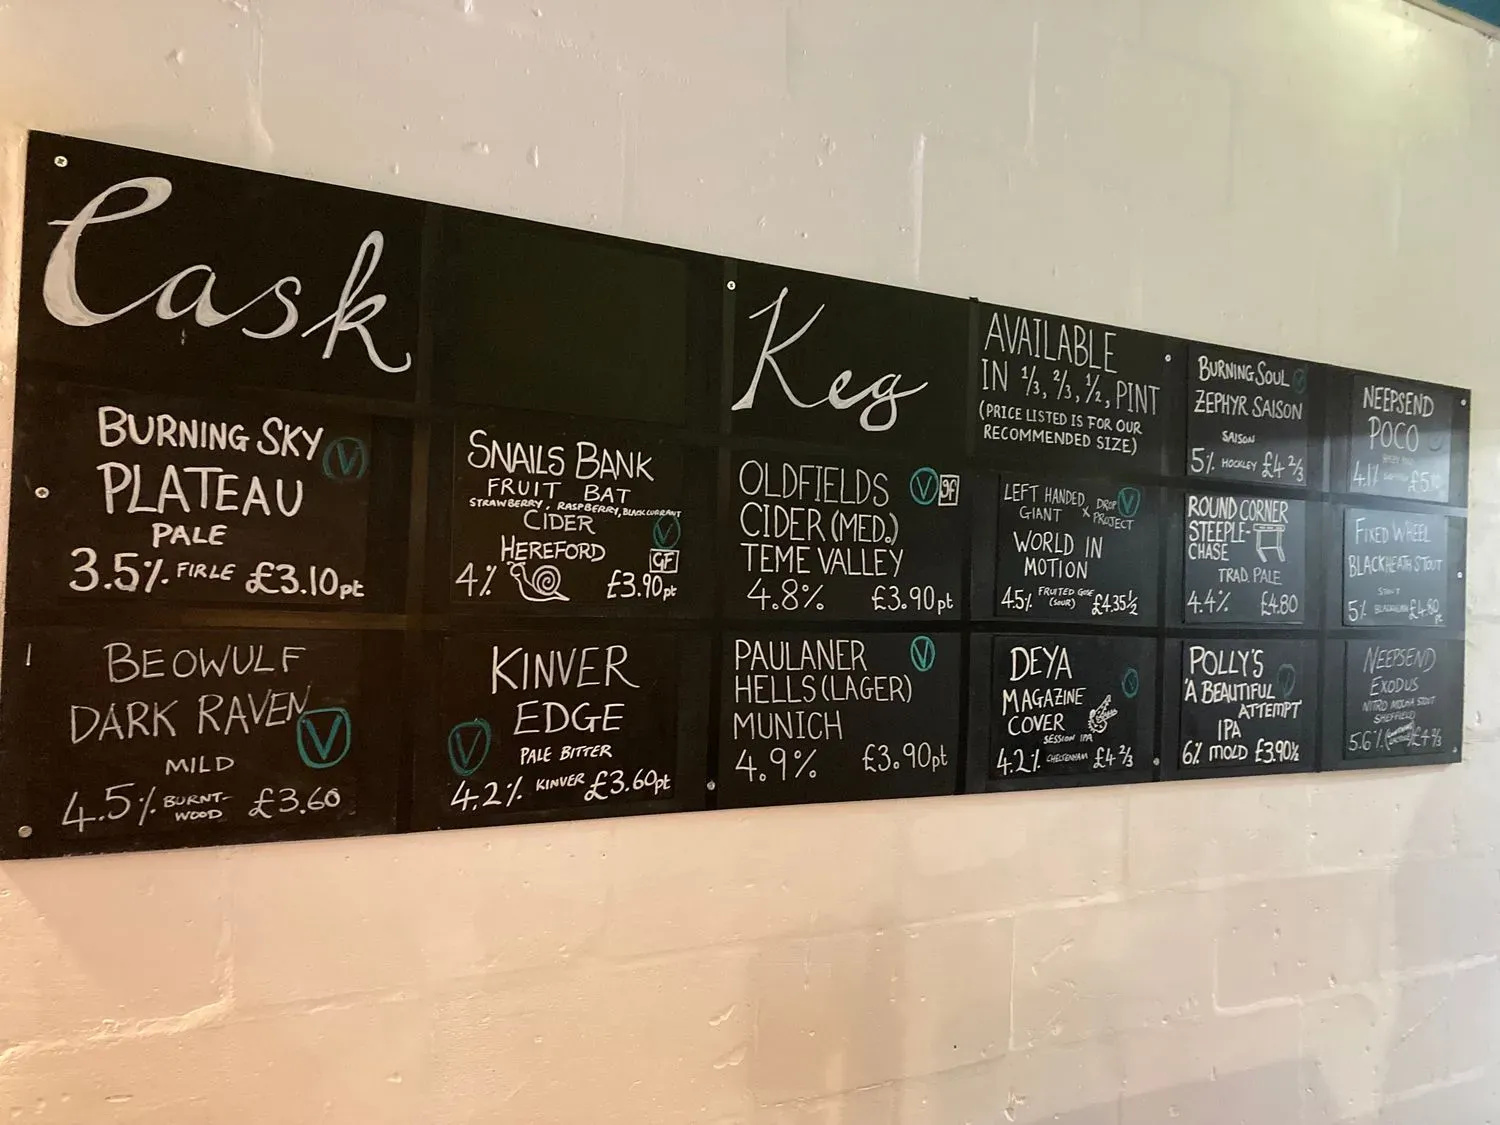 Cask
BURNING SKY
PLATEAU
PALE
3.5% FIRLE £3.10pt
V
BEOWULF
DARK RAVEN
V
MILD
4.5% BURNT-
WOOD £3.60
SNAILS BANK
FRUIT BAT
STRAWBERRY, RASPBERRY, BLACKCURRANT
CIDER
V
HEREFORD
GF
4% £3.90pt
KINVER
EDGE
V
PALE BITTER
4.2% KINVER £3.60pt
Keg
OLDFIELDS
V gf
CIDER (MED.)
TEME VALLEY
4.8% £3.90pt
PAULANER
V
HELLS (LAGER)
MUNICH
4.9% £3.90pt
AVAILABLE
IN 1/3, 2/3, 1/2, PINT
(PRICE LISTED IS FOR OUR
RECOMMENDED SIZE)
LEFT HANDED
GIANT X DROP
PROJECT
V
WORLD IN
MOTION
4.5% FRUITED GOSE
(SOUR) £4.35 1/2
DEYA
MAGAZINE
V
COVER
SESSION IPA
4.2% CHELTENHAM £4 2/3
BURNING SOUL
V
ZEPHYR SAISON
SAISON
5% HOCKLEY £4 2/3
ROUND CORNER
STEEPLE-
CHASE
TRAD. PALE
4.4% £4.80
POLLY'S
V
'A BEAUTIFUL
ATTEMPT'
IPA
6% MOLD £3.90 1/2
NEEPSEND
POCO
4.1%
FIXED WHEEL
BLACKHEATH STOUT
STOUT
5% £4.80
PT
NEEPSEND
EXODUS
NITRO MOCHA STOUT
SHEFFIELD
5.6% £4 2/3